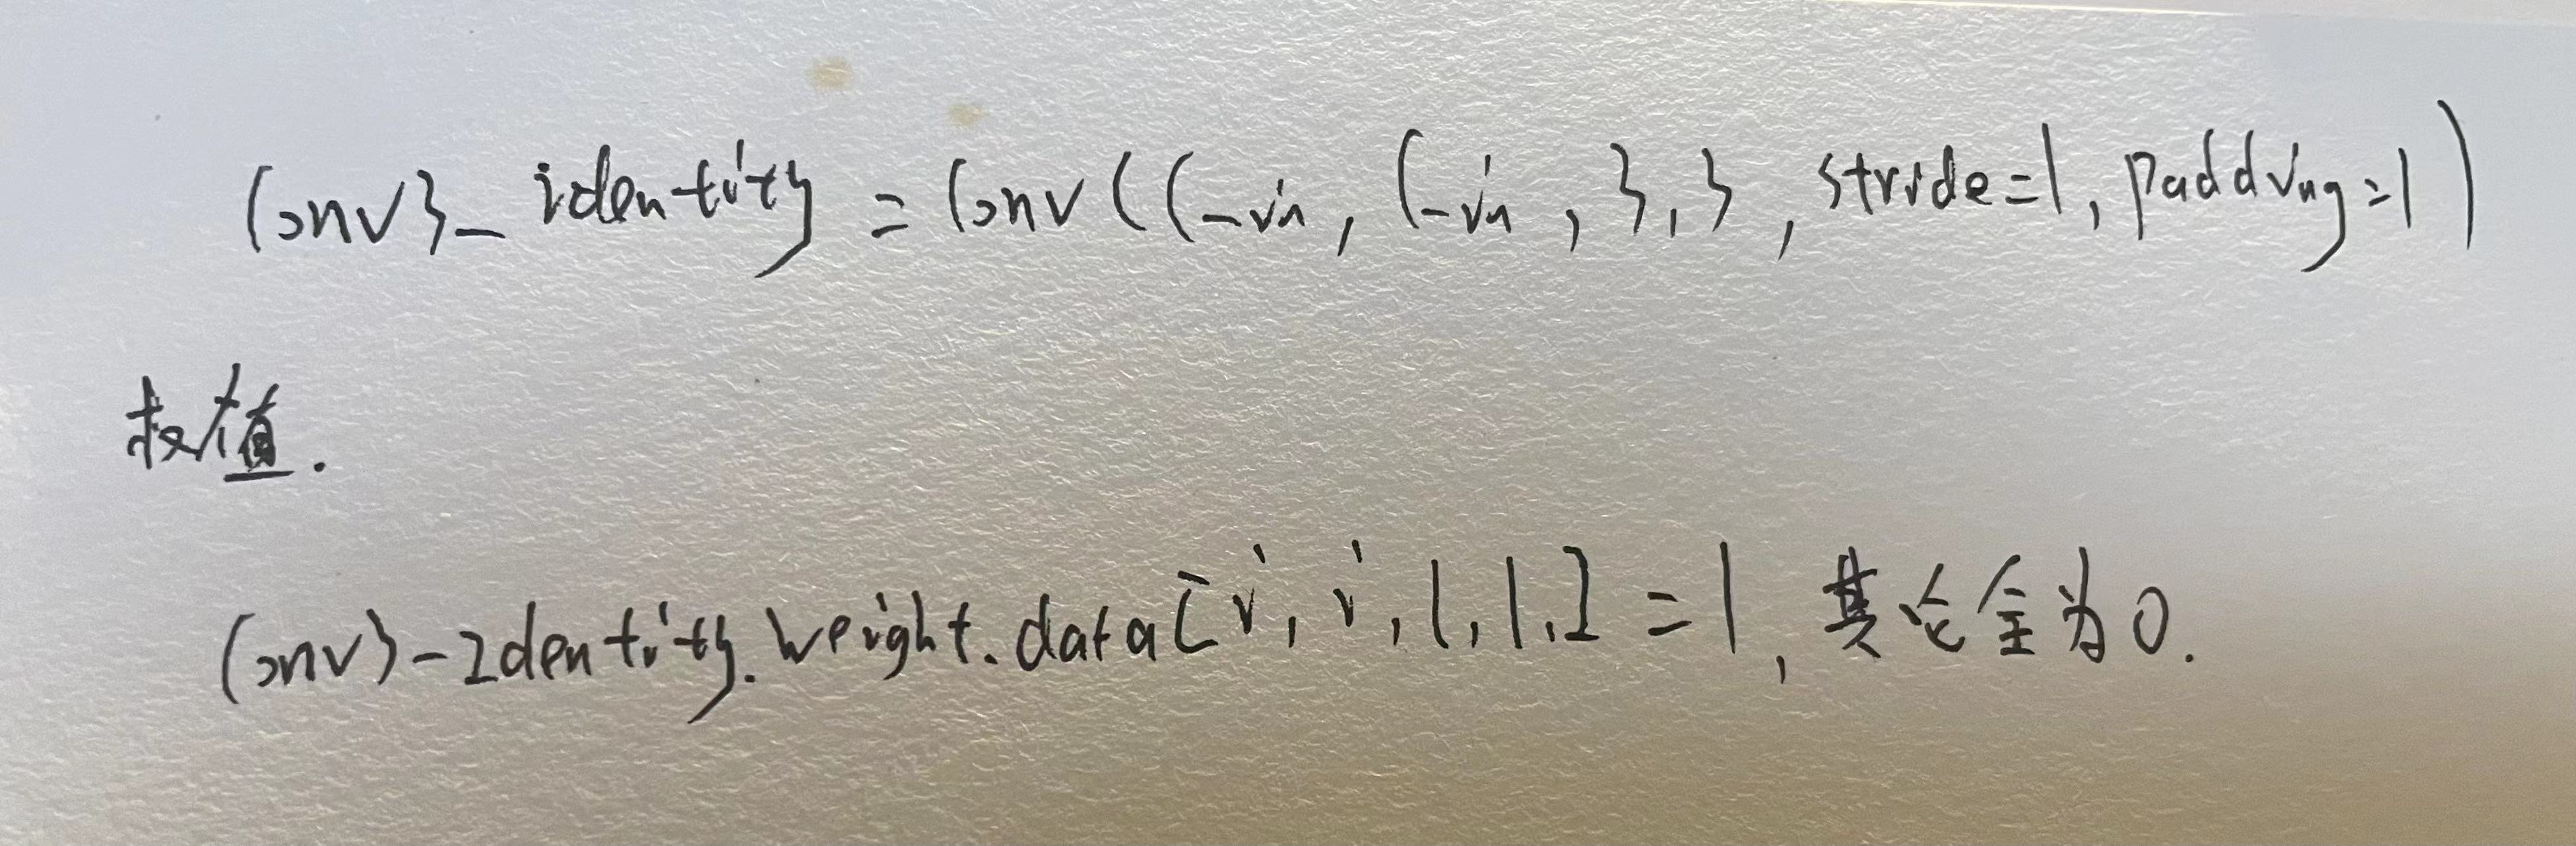 Conv3_identity = Conv(C_in, C_in, 3,3, stride=1, padding=1)
权值.
Conv3_Identity.weight.data[i, i, 1, 1,] = 1, 其它全为0.